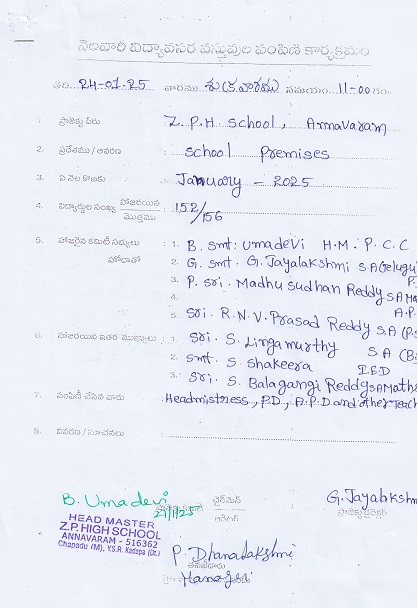 నెలవారీ విద్యావసర వస్తువుల పంపిణీ కార్యక్రమం
తేది. 24-01-25 వారము శుక్రవారము సమయం 11-00 గం
1. ప్రాజెక్టు పేరు Z.P.H School, Annavaram
2. ప్రదేశము / ఆవరణ School Premises
3. ఏ నెల కొఱకు January - 2025
4. విద్యార్థుల సంఖ్య హాజరయిన / మొత్తము 152/156
5. హాజరైన కమిటీ సభ్యులు హోదాతో 1. B. Smt: Umadevi H.M. P.C.C
2. G. Smt. G. Jayalakshmi S A (Telugu)
3. P. Sri. Madhu Sudhan Reddy S A Ma
4.
5. Sri. R.N.V. Prasad Reddy S.A (P.S
6. హాజరయిన ఇతర ముఖ్యులు : 1. Sri. S. Lingamurthy S A (B
2. Smt. S. Shakeera IED
3. Sri. S. Balagangi Reddy SA Maths
7. పంపిణీ చేసిన వారు Headmistress, P.D, A.P.D and other Teach
8. వివరణ / సూచనలు
B. Umadevi
24/1/25
చైర్‌మెన్
G. Jayalakshm
ప్రాజెక్టు డైరెక్టర్
HEAD MASTER
Z.P. HIGH SCHOOL
ANNAVARAM - 516362
Chapadu (M), Y.S.R. Kadapa (Dt.)
P. Dhanalakshmi